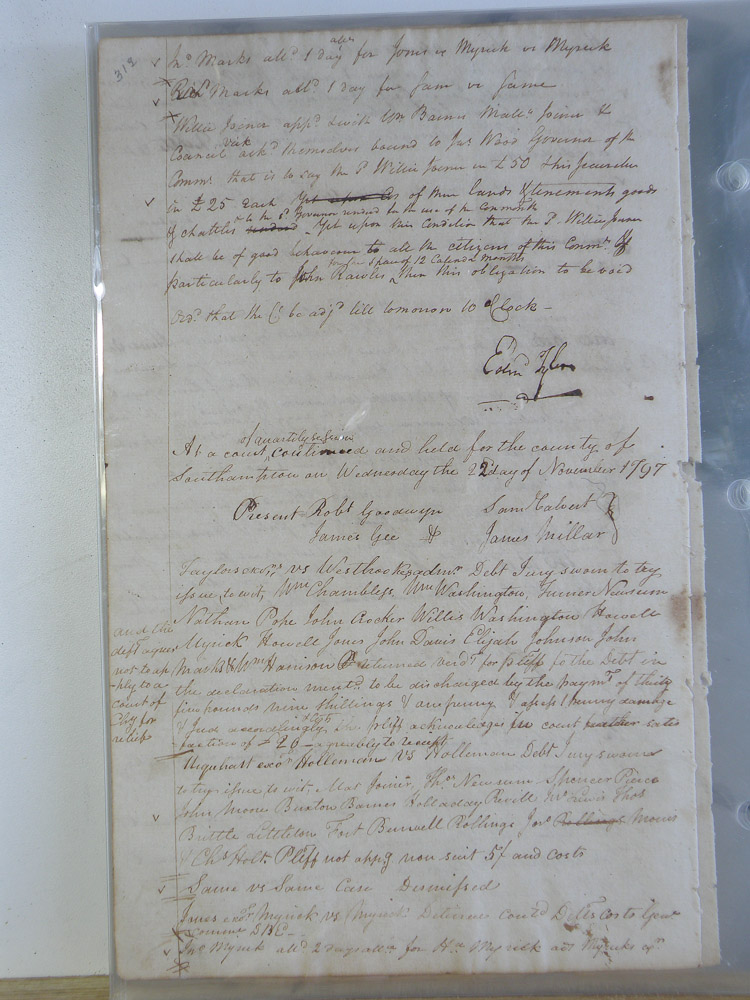 312
Jno Marks alld 1 day atta for Jones vs Myrick vs Myrick
Richd Marks alld 1 day for Sam vs Same
Willie Joiner appd & with Wm Barnes Matw Joiner &
Council ackd themselves bound to Jas Wood Governor of the
Commh that is to say the sd Willie Joiner in £50 & his Securities
in £25 Each of their lands & tenements goods
& chattles to the sd Governor rendered for the use of the Commonwh Yet upon this Condition that the sd Willie Joiner
shall be of good behaviour to all the citizens of this Commh &
particularly to John Rawles for the space of 12 Calendr months then this obligation to be void
Ordd that the Ct be adjd till tomorrow 10 oClock
Edwn Tyler
At a court of quarterly session continued and held for the county of
Southampton on Wednesday the 22 day of November 1797
Present Robt Goodwyn Saml Calvert
James Gee & James Millar
Taylors exors vs Westbrooks admr Debt Jury sworn to try
issue to wit, Wm Chambless Wm Washington, Turner Newsum
Nathan Pope John Crocker Willis Washington Howell
Myrick Howell Jones John Davis Elijah Johnson John
Marks & Wm Harrison returned verdt for pltff fo the Debt in
the declaration mentd to be discharged by the paymt of thirty
five pounds nine shillings & one penny & assess 1 penny damage
& Judt accordingly & costs the pltff acknowledges in court satis
faction of £26 agreeably to receipt
and the
deft agrees
not to ap
ply to a
court of
Chy for
relief
Urquhart exor Holleman vs Holleman Debt Jury sworn
to try issue to wit, Mat Joiner, Thos Newsum Spencer Pierce
John Moore Buxton Barnes Holladay Revell Jno Lewis Thos
Brittle Littleton Fort Burwell Rollings Jos Rollings Moore
& Chs Holt Pltff not appg non suit 5/ and costs
Same vs Same Case Dismissed
Jones exor Myrick vs Myrick Detinue contd Defts costs
Jno Myrick alld 2 days atta for Myrick ads Myricks exr